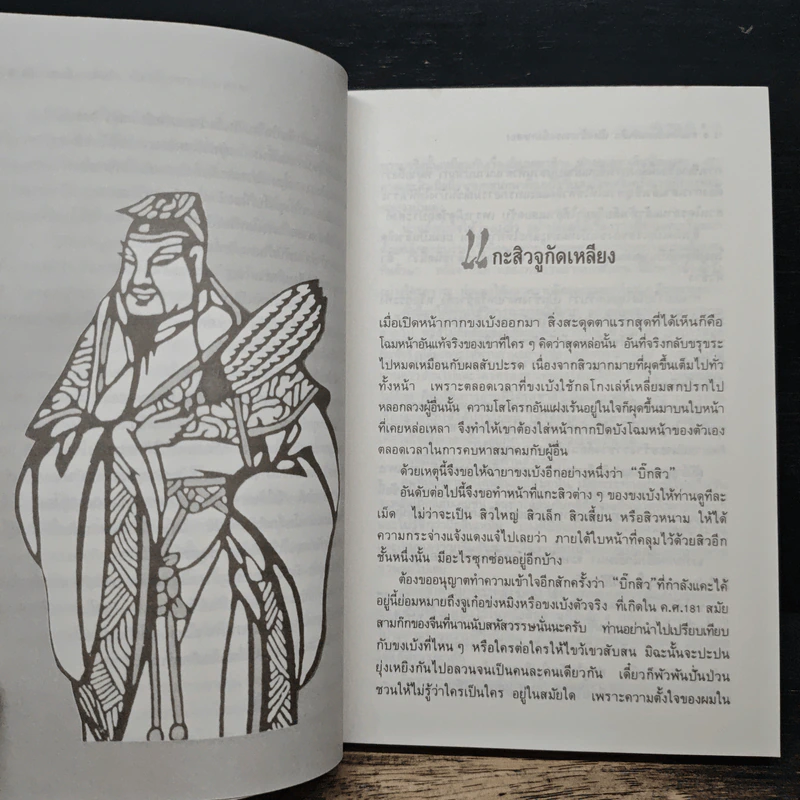 แกะสิวจูกัดเหลียง
เมื่อเปิดหน้ากากขงเบ้งออกมา สิ่งสะดุดตาแรกสุดที่ได้เห็นก็คือ
โฉมหน้าอันแท้จริงของเขาที่ใคร ๆ คิดว่าสุดหล่อนั้น อันที่จริงกลับขรุขระ
ไปหมดเหมือนกับผลสับปะรด เนื่องจากสิวมากมายที่ผุดขึ้นเต็มไปทั่ว
ทั้งหน้า เพราะตลอดเวลาที่ขงเบ้งใช้กลโกงเล่ห์เหลี่ยมสกปรกไป
หลอกลวงผู้อื่นนั้น ความโสโครกอันแฝงเร้นอยู่ในใจก็ผุดขึ้นมาบนใบหน้า
ที่เคยหล่อเหลา จึงทำให้เขาต้องใส่หน้ากากปิดบังโฉมหน้าของตัวเอง
ตลอดเวลาในการคบหาสมาคมกับผู้อื่น
ด้วยเหตุนี้จึงขอให้ฉายาขงเบ้งอีกอย่างหนึ่งว่า “บิ๊กสิว”
อันดับต่อไปนี้จึงขอทำหน้าที่แกะสิวต่าง ๆ ของขงเบ้งให้ท่านดูทีละ
เม็ด ไม่ว่าจะเป็น สิวใหญ่ สิวเล็ก สิวเสี้ยน หรือสิวหนาม ให้ได้
ความกระจ่างแจ้งแดงแจ๋ไปเลยว่า ภายใต้ใบหน้าที่คลุมไว้ด้วยสิวอีก
ชั้นหนึ่งนั้น มีอะไรซุกซ่อนอยู่อีกบ้าง
ต้องขออนุญาตทำความเข้าใจอีกสักครั้งว่า “บิ๊กสิว”ที่กำลังแคะไค้
อยู่นี้ย่อมหมายถึงจูเก๋อข่งหมิงหรือขงเบ้งตัวจริง ที่เกิดใน ค.ศ.181 สมัย
สามก๊กของจีนที่นานนับสหัสวรรษนั่นนะครับ ท่านอย่านำไปเปรียบเทียบ
กับขงเบ้งที่ไหน ๆ หรือใครต่อใครให้ไขว้เขวสับสน มิฉะนั้นจะปะปน
ยุ่งเหยิงกันไปอลวนจนเป็นคนละคนเดียวกัน เดี๋ยวก็พัวพันปั่นป่วน
ชวนให้ไม่รู้ว่าใครเป็นใคร อยู่ในสมัยใด เพราะความตั้งใจของผมใน